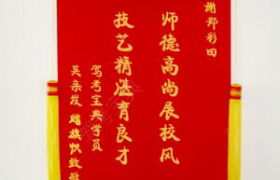 谢郑彩田
师德高尚展校风
技艺精湛育良才
驾考宝典学员
吴亲发 赠旗恭致敬